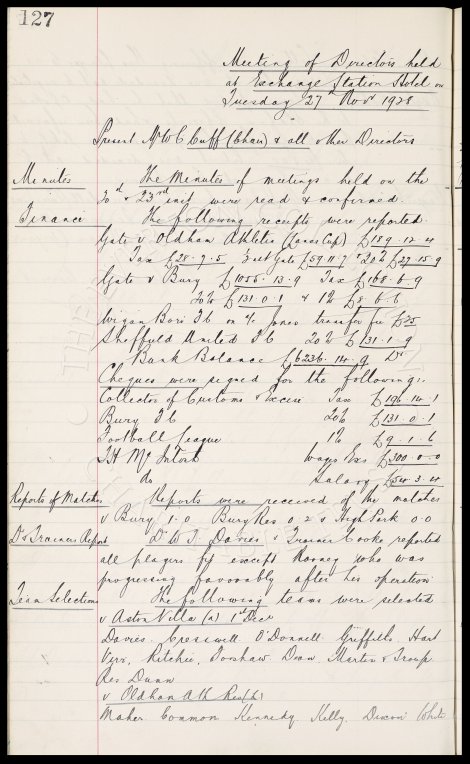 127
Meeting of Directors held
at Exchange Station Hotel on
Tuesday 27th Novr 1928
Present Mr W C Cuff (Chair) & all other Directors
Minutes The Minutes of meetings held on the
& 23rd inst were read & confirmed.
Finance The following receipts were reported.
Gate v Oldham Athletic (Lancs Cup) £189.12.4
Tax £28.7.5 Exit Gate £59.11.7 20% £27.15.9
Gate v Bury £1056.13.9 Tax £168.6.9
20% £131.0.1 & 1% £8.6.6
Wigan Boro Fc on % Jones transfer fee £25
Sheffield United Fc 20% £131.1.9
Bank Balance £6236.14.9 Dr
Cheques were signed for the following:.
Collector of Customs & Excise Tax £196.14.1
Bury Fc 20% £131.0.1
Football League 1% £9.1.6
T.H. McIntosh Wages Exs £300.0.0
Do Salary £54.3.4
Reports of Matches Reports were received of the matches
v Bury 1.0 Bury Res 0.2 & High Park 0.0
Dr & Trainers Report Dr W.T. Davies & Trainer Cooke reported
all players fit except Rooney who was
progressing favorably after his operation
Team Selections The following teams were selected
v Aston Villa (a) 1st Decr
Davies. Cresswell O'Donnell Griffiths Hart
Virr, Ritchie, Forshaw Dean Martin & Troup
Res Dunn
v Oldham Ath Res (h)
Maher Common Kennedy Kelly Dixon White